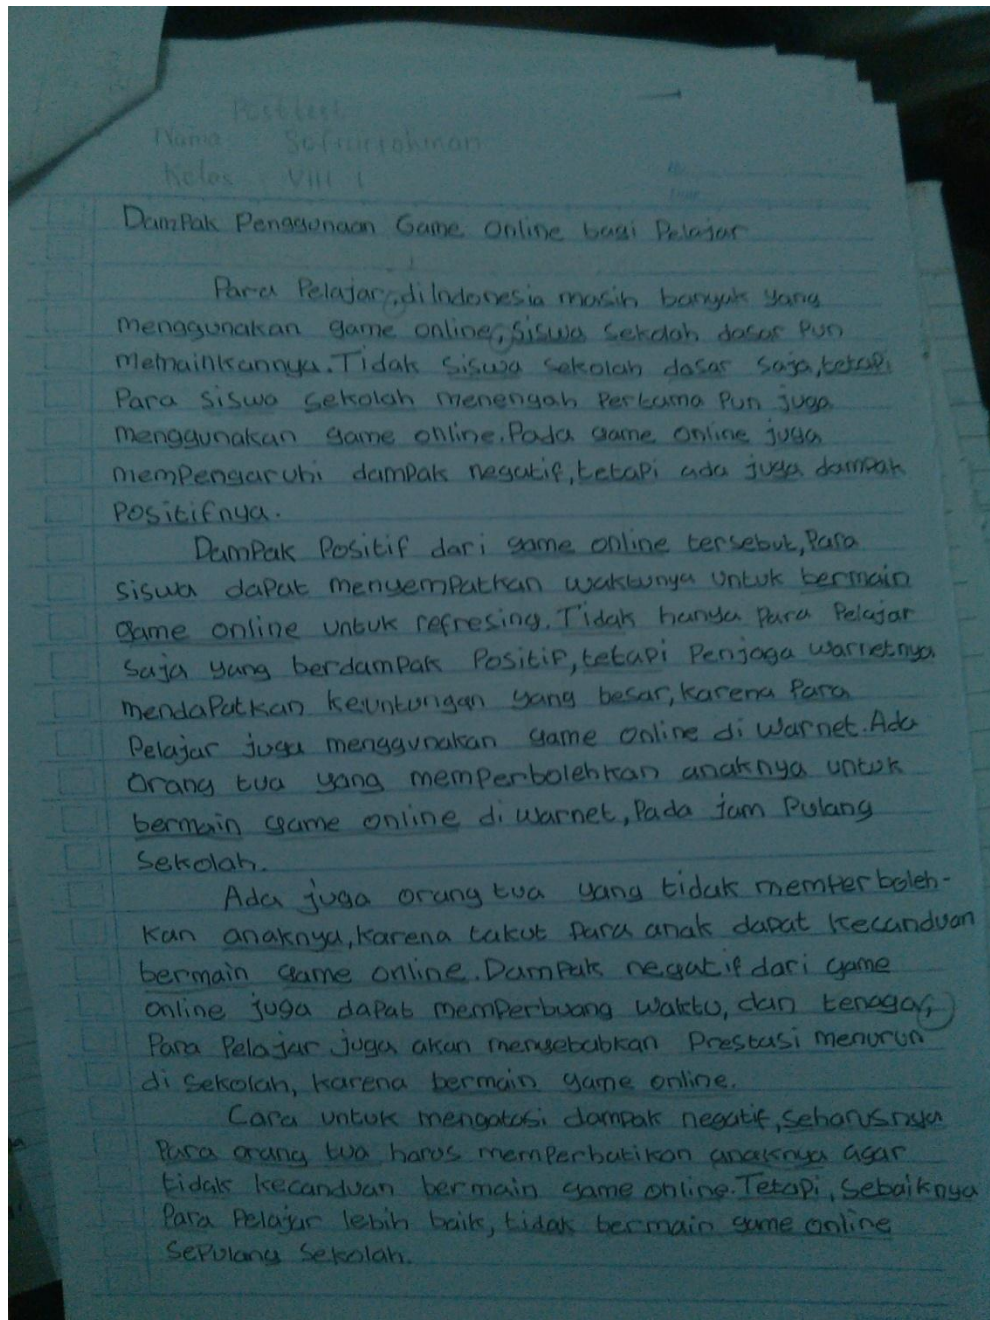 Posttest
Nama
Kelas : VIII 1
Dampak Penggunaan Game Online bagi Pelajar
Para Pelajar, di Indonesia masih banyak yang
menggunakan game online, siswa sekolah dasar pun
memainkannya. Tidak siswa sekolah dasar saja, tetapi
Para siswa sekolah menengah Pertama Pun juga
menggunakan game online. Pada game online juga
mempengaruhi dampak negatif, tetapi ada juga dampak
Positifnya.
Dampak Positif dari game online tersebut, Para
siswa dapat menyempatkan waktunya untuk bermain
game online untuk refresing. Tidak hanya Para Pelajar
saja yang berdampak Positif, tetapi Penjaga warnetnya
mendapatkan keuntungan yang besar, karena Para
Pelajar juga menggunakan game online di warnet. Ada
Orang tua yang memperbolehkan anaknya untuk
bermain game online di warnet, Pada jam Pulang
Sekolah.
Ada juga orang tua yang tidak memperboleh-
kan anaknya, karena takut Para anak dapat kecanduan
bermain game online. Dampak negatif dari game
online juga dapat memperbuang waktu, dan tenaga,
Para Pelajar juga akan menyebabkan Prestasi menurun
di Sekolah, karena bermain game online.
Cara untuk mengatasi dampak negatif, seharusnya
Para orang tua harus memperhatikan anaknya agar
tidak kecanduan bermain game online. Tetapi, sebaiknya
Para Pelajar lebih baik, tidak bermain game online
sepulang sekolah.